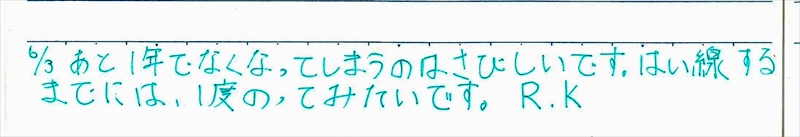 6/3 あと1年でなくなってしまうのはさびしいです。はい線する
までには、1度のってみたいです。 R.K